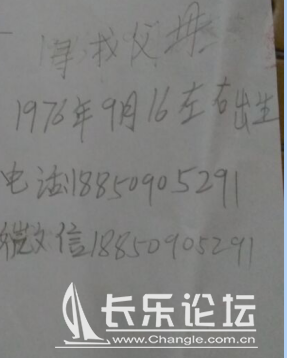 寻找父母
1976年9月16左右出生
电话:18850905291
微信18850905291
长乐论坛
www.Changle.com.cn